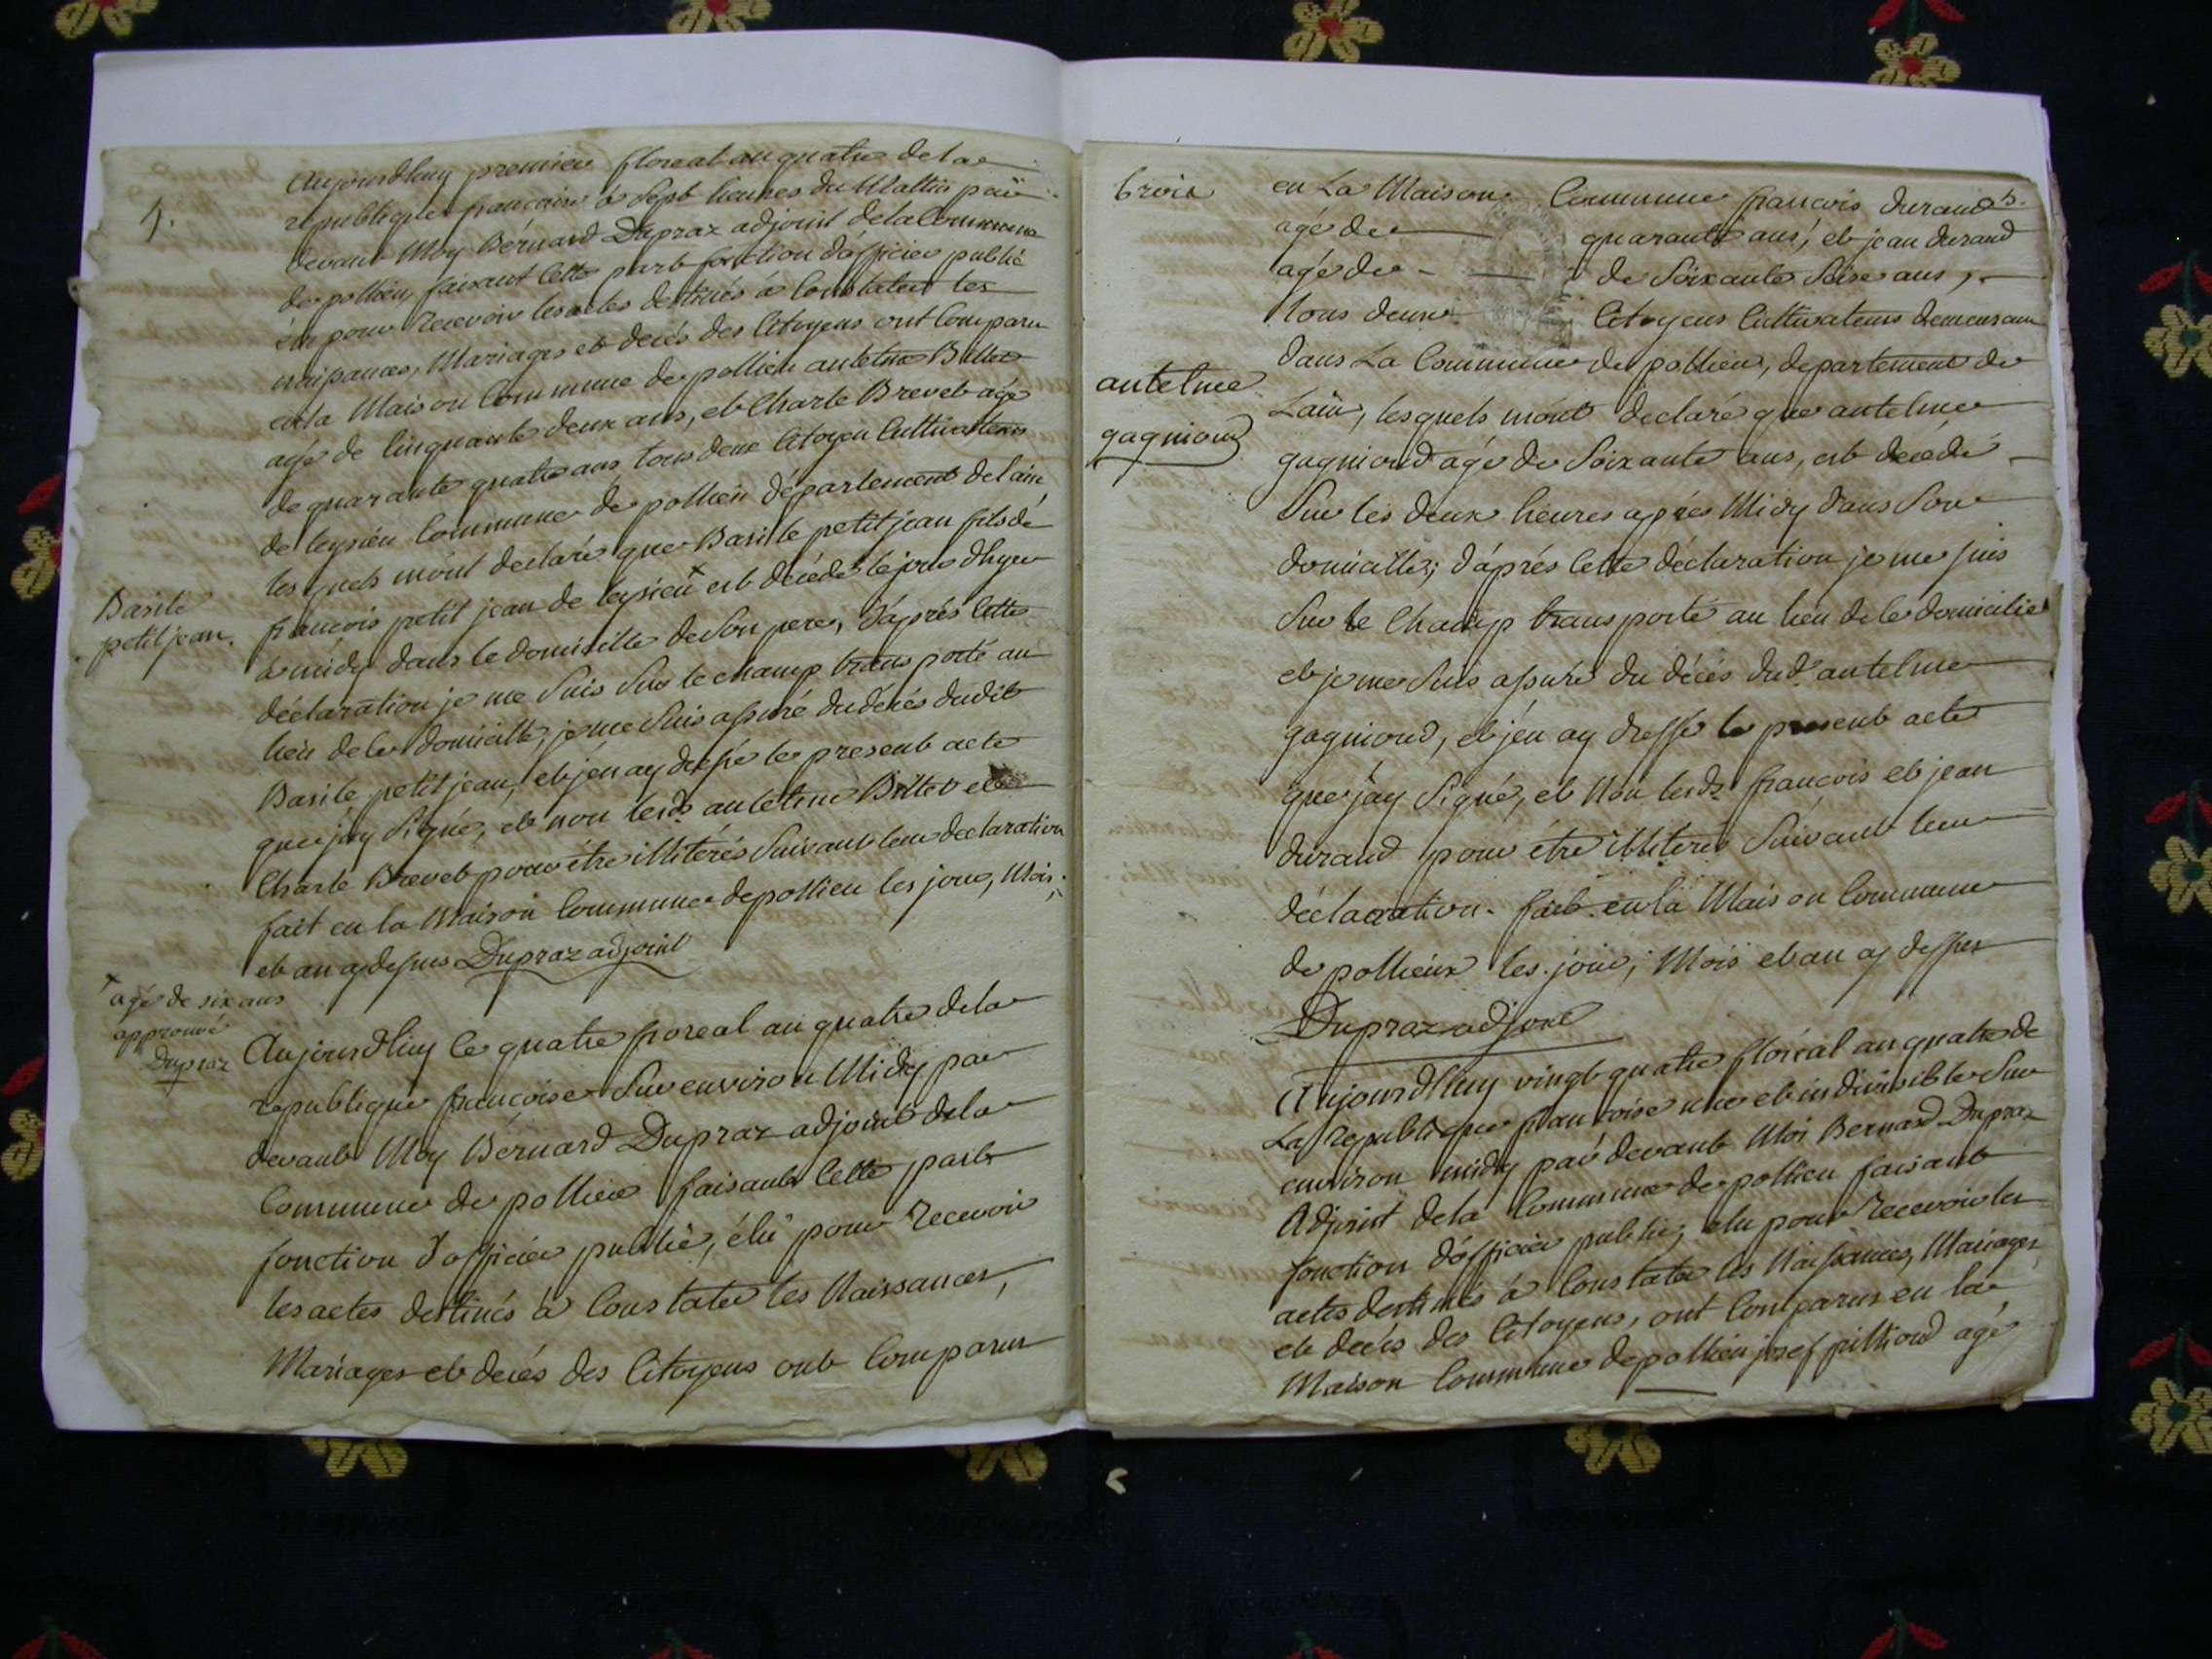 4.
Aujourdhuy premier floreal an quatre de la
republique francoise à Sept heures du Mattin par
devant Moy Bérnard Dupraz adjoint de la Commune
de pollieu faisant Cette part fonction d'officier publié
élu pour Recevoir les actes destinés à Constater les
naissances, Mariages et decés des Citoyens ont Comparu
en la Maison Commune de pollieu antelme Billet
agé de Cinquante deux ans, et Charle Brevet agé
de quarante quatre ans tous deux Citoyen Cultivateurs
de leysieu Commune de pollieu département de lain
les quels mónt declaré que Basile petit jean fils de
Basile
petit jean.
francois petit jean de leysieu x est décédé le jour dhyer
à midy dans le domicille de Son pere, d'aprés Cette
déclaration je me Suis Sur le champ transporté au
lieu de le domicille, je me Suis assuré du décés dudit
Basile petit jean, et jen ay dressé le present acte
que jay Signé, et non lesd. antelme Billet et
Charle Brevet pour étre illitérés Suivant leur declaration
fait en la Maison Commune de pollieu les jour, Mois,
et an aydessus Dupraz adjoint
x agé de six ans
approuvé
Dupraz
Aujourdhuy le quatre floreal an quatre de la
republique francoise Sur environ Midy par
devant Moy Bérnard Dupraz adjoint de la
Commune de pollieu faisant Cette part
fonction d'officier publié, élu pour Recevoir
les actes destinés à Constater les Naissances,
Mariages et decés des Citoyens ont Comparus
5.
trois
en La Maison Commune francois durand
agé de quarante ans, et jean durand
agé de de Soixante Seise ans,
tous deux Citoyens Cultivateurs demeurant
dans La Commune de pollieu, departement de
antelme
gagnioud
Lain, lesquels mónt declaré que antelme
gagnioud agé de Soixante ans, est decedé
Sur les deux heures aprés Midy dans Son
domicille; d'áprés Cette déclaration je me suis
Sur le Champ transporté au lieu de le domicilie
et je me Suis assuré du décés dud. antelme
gagnioud, et jen ay dressé le present acte
que jay Signé, et Non lesd. francois et jean
durand pour étre illiterés Suivant leur
déclaration. fait en la Maison Commune
de pollieux les jour, Mois et an ay dessus
Dupraz adjoint
Aujourdhuy vingt quatre floréal an quatre de
La republique francoise une et indivisible Sur
environ midy par devant Moi Bernard Dupraz
Adjoint de la Commune de pollieu faisant
fonction d'officier public, elu pour Recevoir les
actes destinés à Constater les Naissances, Mariages
et decés des Citoyens, ont Comparus en la
Maison Commune de pollieu josef pillioud agé